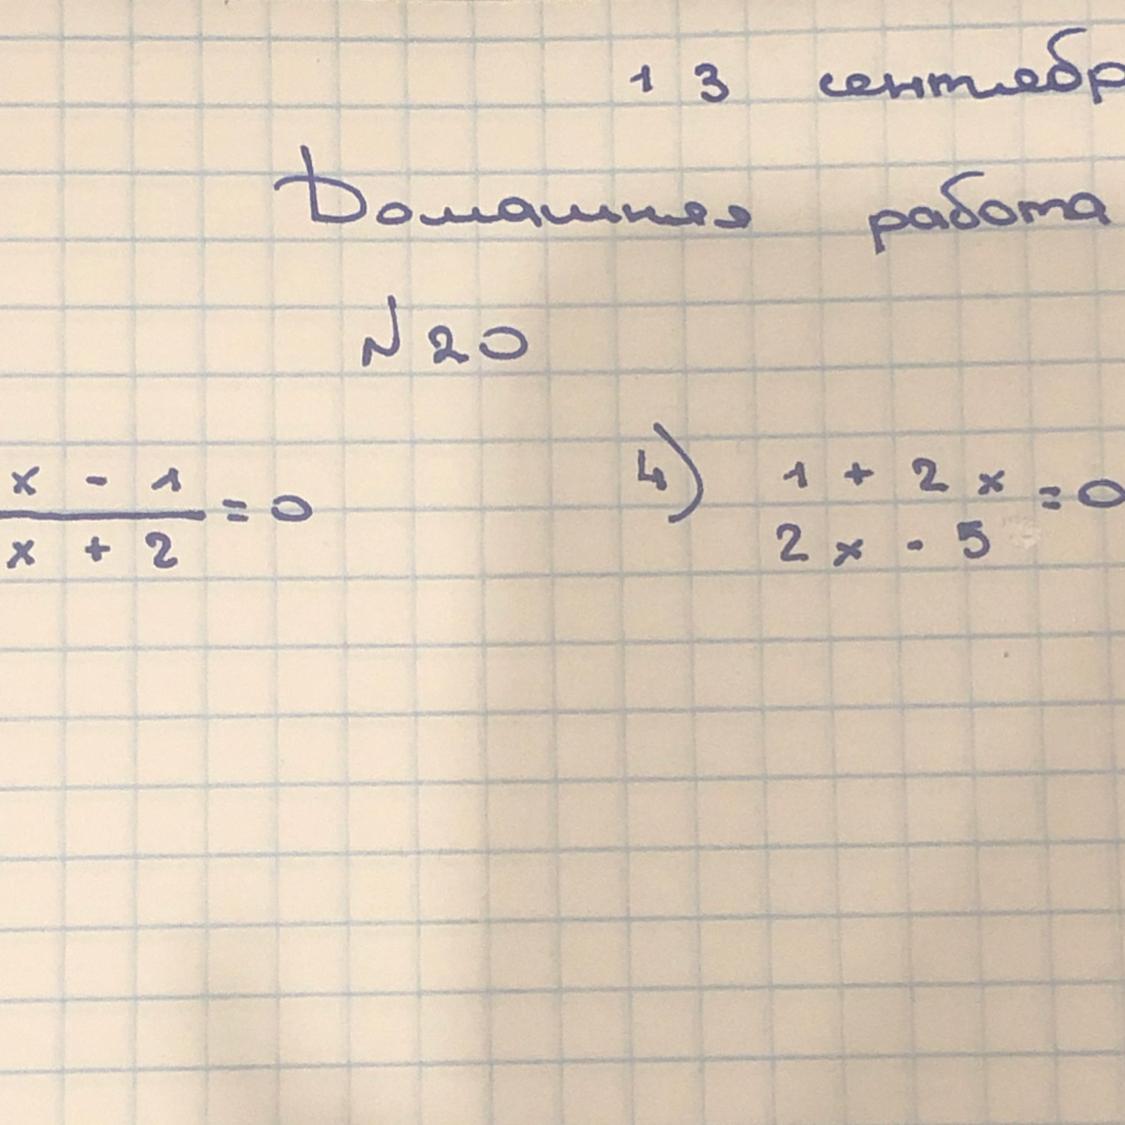 13 сентябр
Домашняя работа
№20
x - 1
x + 2 = 0
4) 1 + 2x
2x - 5 = 0